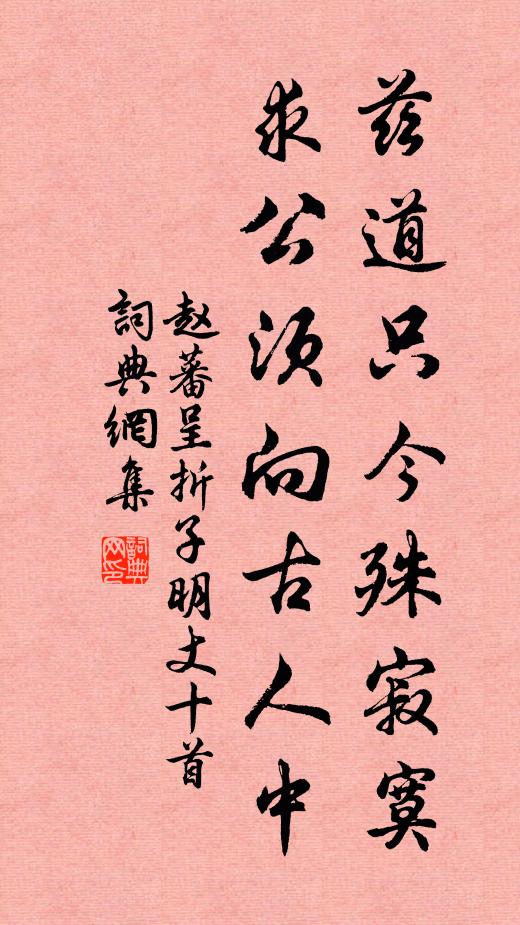 兹道只今殊寂寞
求公须向古人中
赵蕃呈折子明丈十首
詞典網集
詞典网印